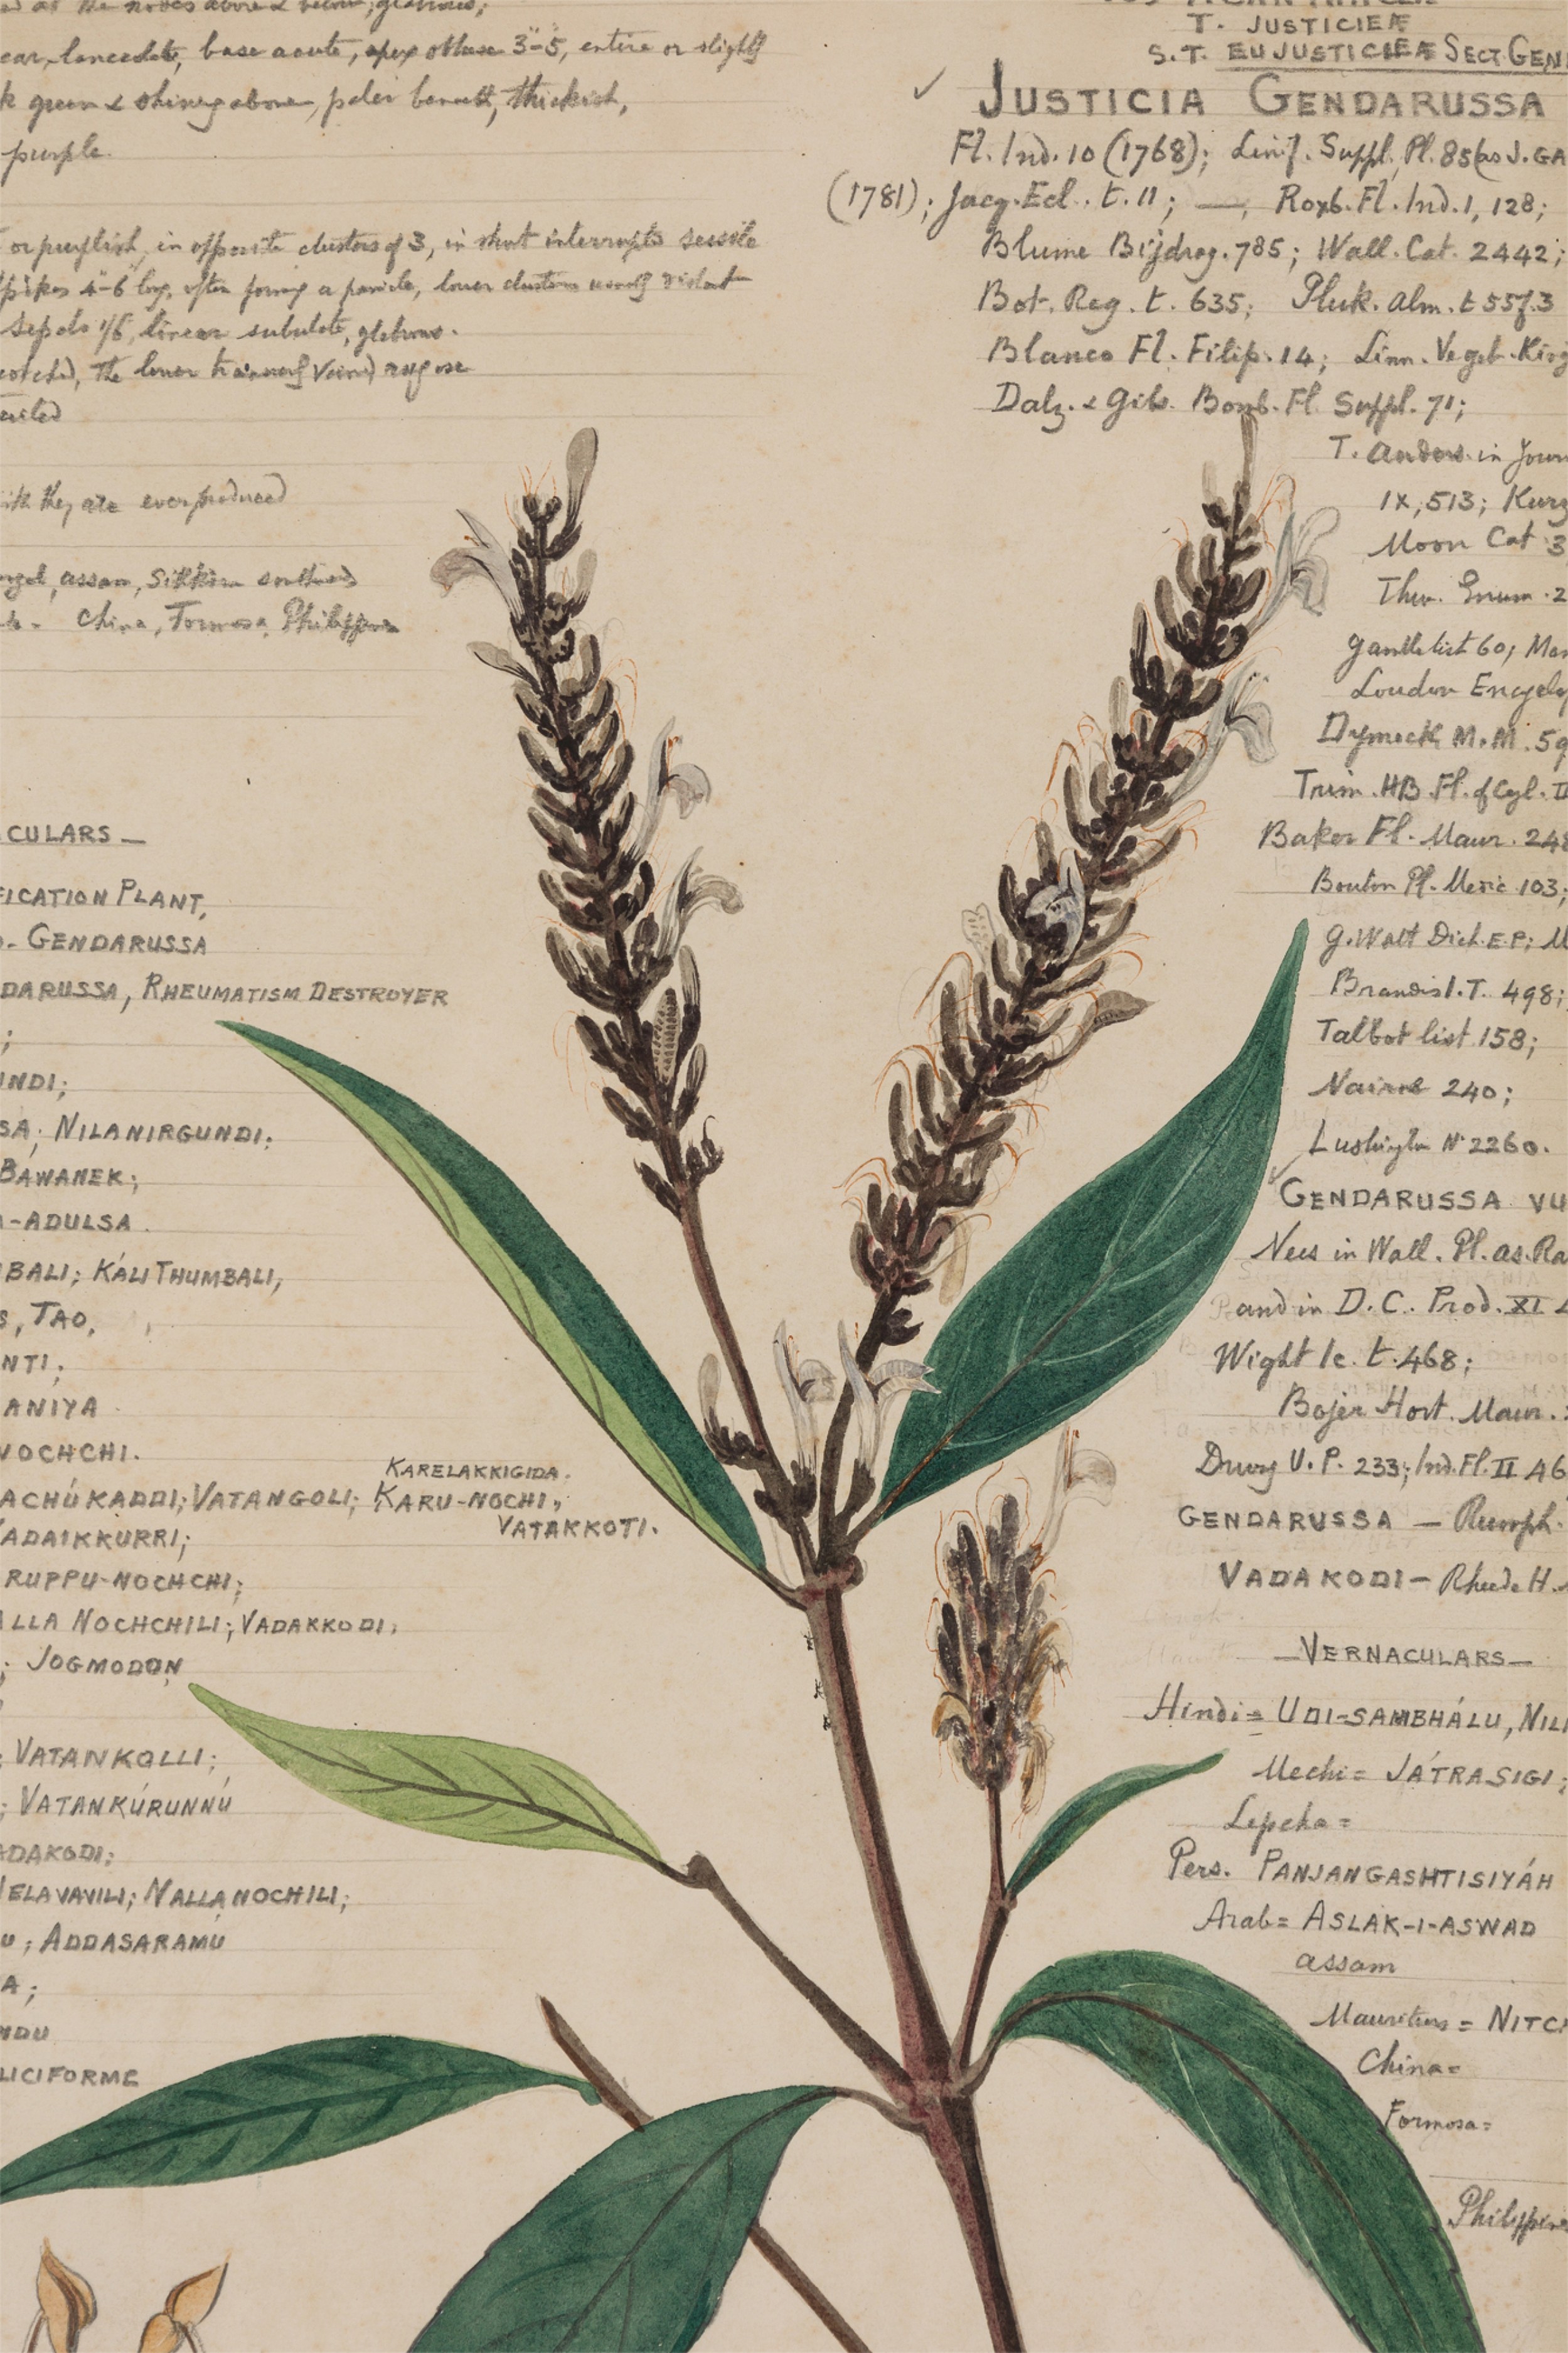 at the nodes above & below, glabrous;
lanceolate, base acute, apex obtuse 3"-5, entire or slightly
green & shining above, paler beneath, thickish,
purple.
or purplish, in opposite clusters of 3, in short interrupted sessile
spikes 4"-6 long, often forming a panicle, lower clusters usually distant
sepals 1/6, linear subulate, glabrous.
the lower
they are ever produced
assam, Sikkim
China, Formosa, Philippines
CULARS —
FICATION PLANT,
- GENDARUSSA
DARUSSA, RHEUMATISM DESTROYER
;
INDI;
SA; NILANIRGUNDI;
BAWANEK;
-ADULSA.
BALI; KÁLI THUMBALI,
S, TAO,
NTI;
ANÍYA
NOCHCHI.
KARELAKKIGIDA.
ACHÚKADDI; VATANGOLI; KARU-NOCHI,
VATAKKOTI.
ADAIKKURRI;
RUPPU-NOCHCHI;
ALLA NOCHCHILI; VADAKKODI,
; JOGMODON
; VATANKOLLI;
; VATANKÚRUNNÚ
ADAKODI;
ELAVAVILI; NALLANOCHILI;
U; ADDASARAMU
A;
NDU
LICIFORME
T. JUSTICIEÆ
S.T. EUJUSTICIEÆ SECT. GEN
JUSTICIA GENDARUSSA
Fl. Ind. 10 (1768); Linf. Suppl. Pl. 85 (as J. GA
(1781); Jacq. Ecl. t. 11; —; Roxb. Fl. Ind. 1, 128;
Blume Bijdrag. 785; Wall. Cat. 2442;
Bot. Reg. t. 635; Pluk. Alm. t 55 f. 3
Blanco Fl. Filip. 14; Linn. Veget. King
Dalz. & Gibs. Bomb. Fl. Suppl. 71;
T. Anders. in Journ
IX, 513; Kurz
Moon Cat 3
Thw. Enum. 2
list 60; Mas
Loudon Encyclop
Dymock M.M. 59
Trim. HB. Fl. of Cyl. II
Baker Fl. Maur. 248
Bouton Pl. Medic 103;
G. Watt Dict. E.P; M
Brandis I.T. 498;
Talbot list 158;
Nairne 240;
Lushington No 2260.
GENDARUSSA VU
Nees in Wall. Pl. as. Ra
and in D.C. Prod. XI 4
Wight Ic. t. 468;
Bojer Hort. Maur.
Drury U.P. 233; Ind. Fl. II 46
GENDARUSSA — Rumph.
VADAKODI — Rheede H.
— VERNACULARS —
Hindi = UDI-SAMBHÁLU, NILI
Mechi = JÁTRASIGI;
Lepcha =
Pers. PANJANGASHTISIYÁH
Arab = ASLAK-I-ASWAD
assam
Mauritius = NITC
China =
Formosa =
Philippines